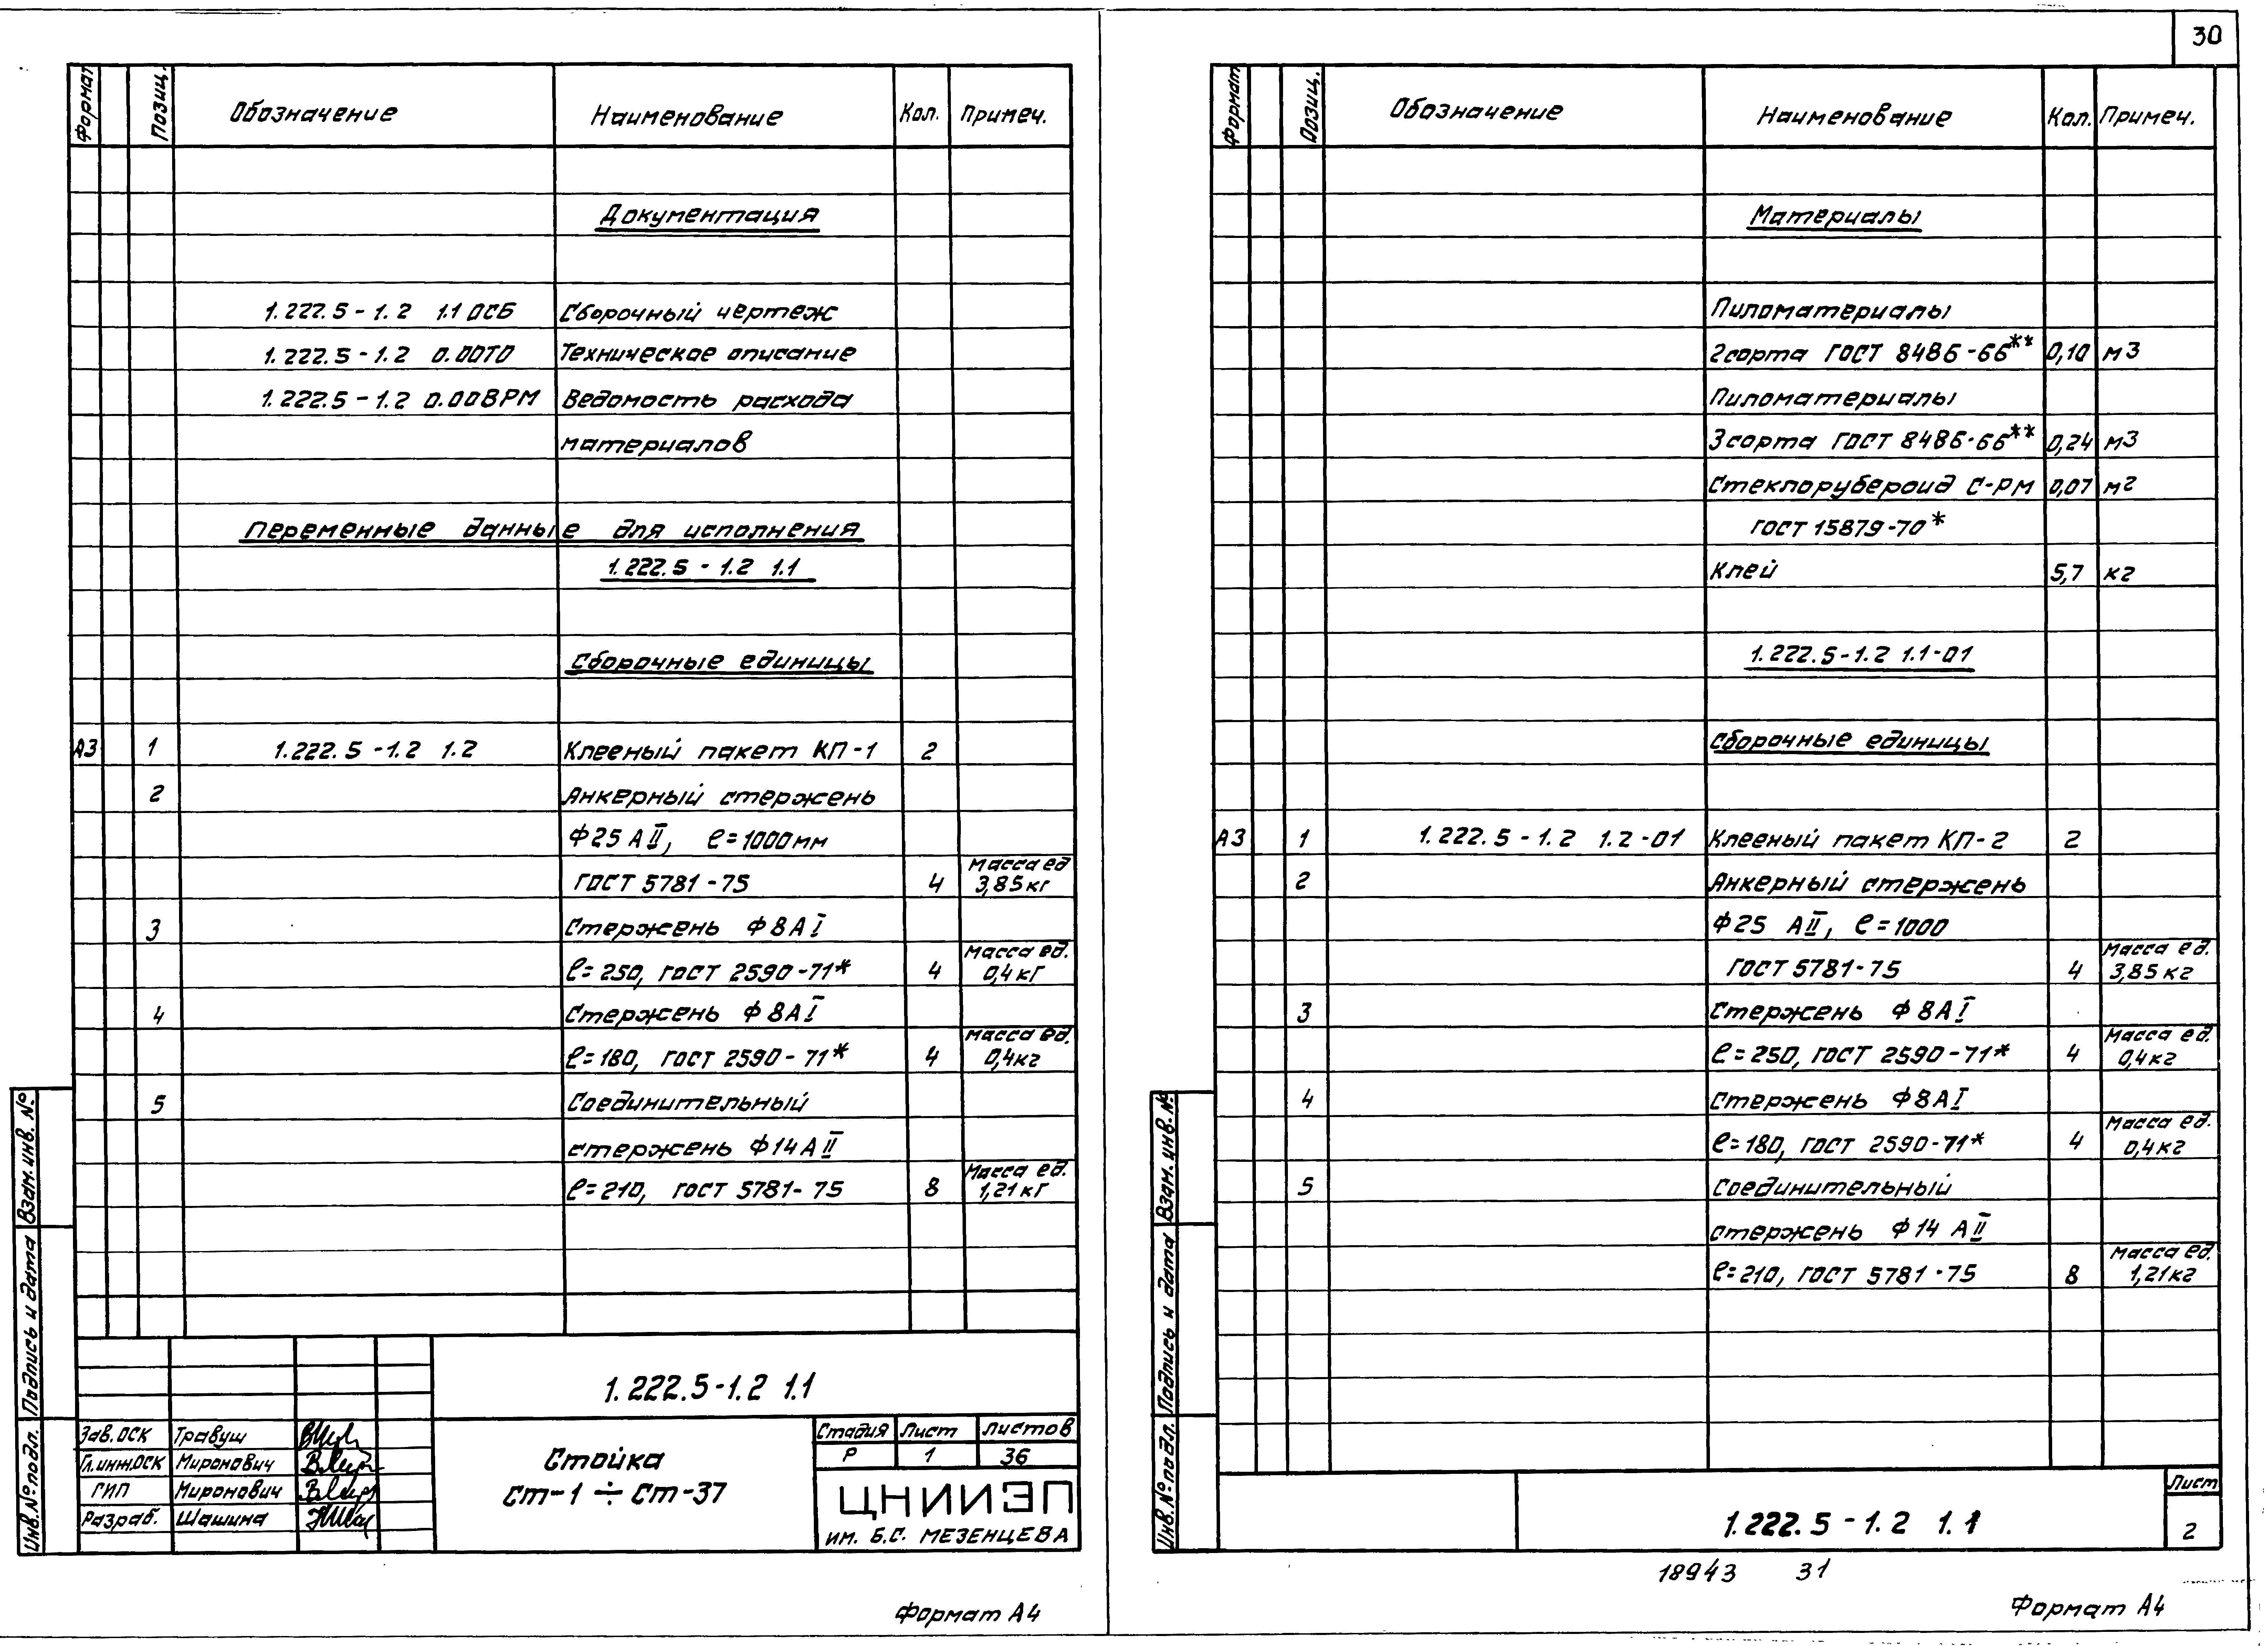 30
Формат Позиц. Обозначение Наименование Кол. Примеч.
Документация
1.222.5-1.2 1.1 0СБ Сборочный чертеж
1.222.5-1.2 0.00ТО Техническое описание
1.222.5-1.2 0.00ВРМ Ведомость расхода
материалов
Переменные данные для исполнения
1.222.5-1.2 1.1
Сборочные единицы
А3 1 1.222.5-1.2 1.2 Клееный пакет КП-1 2
2 Анкерный стержень
Ф25 АII, ℓ=1000мм
Масса ед
ГОСТ 5781-75 4 3,85кг
3 Стержень Ф8АI
Масса ед.
ℓ=250, ГОСТ 2590-71* 4 0,4кг
4 Стержень Ф8АI
Масса ед.
ℓ=180, ГОСТ 2590-71* 4 0,4кг
5 Соединительный
стержень Ф14АII
Масса ед.
ℓ=210, ГОСТ 5781-75 8 1,21кг
1.222.5-1.2 1.1
Зав.ОСК Травуш
Гл.инж.ОСК Миронович
ГИП Миронович
Разраб. Шашина
Стойка
Ст-1 ÷ Ст-37
Стадия Лист Листов
Р 1 36
ЦНИИЭП
ИМ. Б.С. МЕЗЕНЦЕВА
Инв.№подл. Подпись и дата Взам.инв.№
Формат А4
Формат Позиц. Обозначение Наименование Кол. Примеч.
Материалы
Пиломатериалы
2сорта ГОСТ 8486-66** 0,10 м3
Пиломатериалы
3сорта ГОСТ 8486-66** 0,24 м3
Стеклорубероид С-РМ 0,07 м2
ГОСТ 15879-70*
Клей 5,7 кг
1.222.5-1.2 1.1-01
Сборочные единицы
А3 1 1.222.5-1.2 1.2-01 Клееный пакет КП-2 2
2 Анкерный стержень
Ф25 АII, ℓ=1000
Масса ед.
ГОСТ 5781-75 4 3,85кг
3 Стержень Ф8АI
Масса ед.
ℓ=250, ГОСТ 2590-71* 4 0,4кг
4 Стержень Ф8АI
Масса ед.
ℓ=180, ГОСТ 2590-71* 4 0,4кг
5 Соединительный
стержень Ф14 АII
Масса ед.
ℓ=210, ГОСТ 5781-75 8 1,21кг
1.222.5-1.2 1.1
Лист
2
Инв.№подл. Подпись и дата Взам.инв.№
18943 31
Формат А4